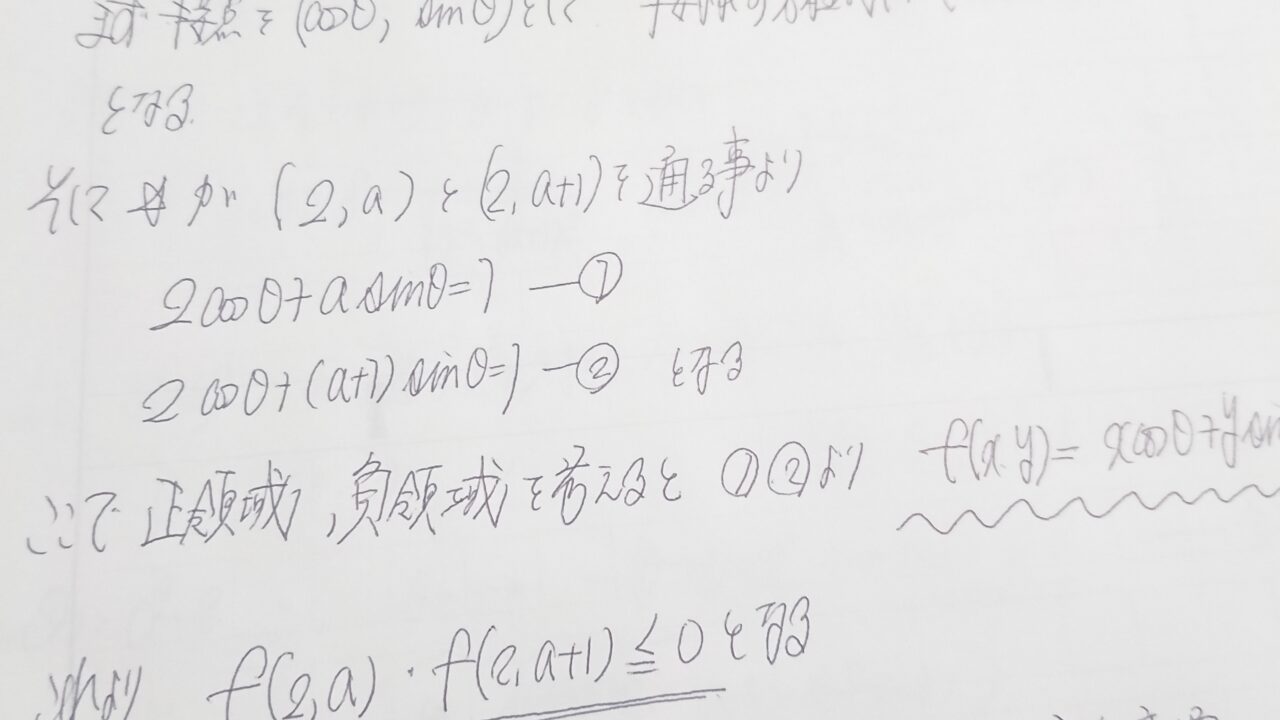 接点を(cosθ, sinθ)とに
となる
(2, a)と(2, a+1)を通る事より
2cosθ+a sinθ=1 —①
2cosθ+(a+1)sinθ=1 —② となる
ここで正領域,負領域を考えると ①②より f(x.y)= xcosθ+y
これより f(2,a)・f(2,a+1)≦0となる